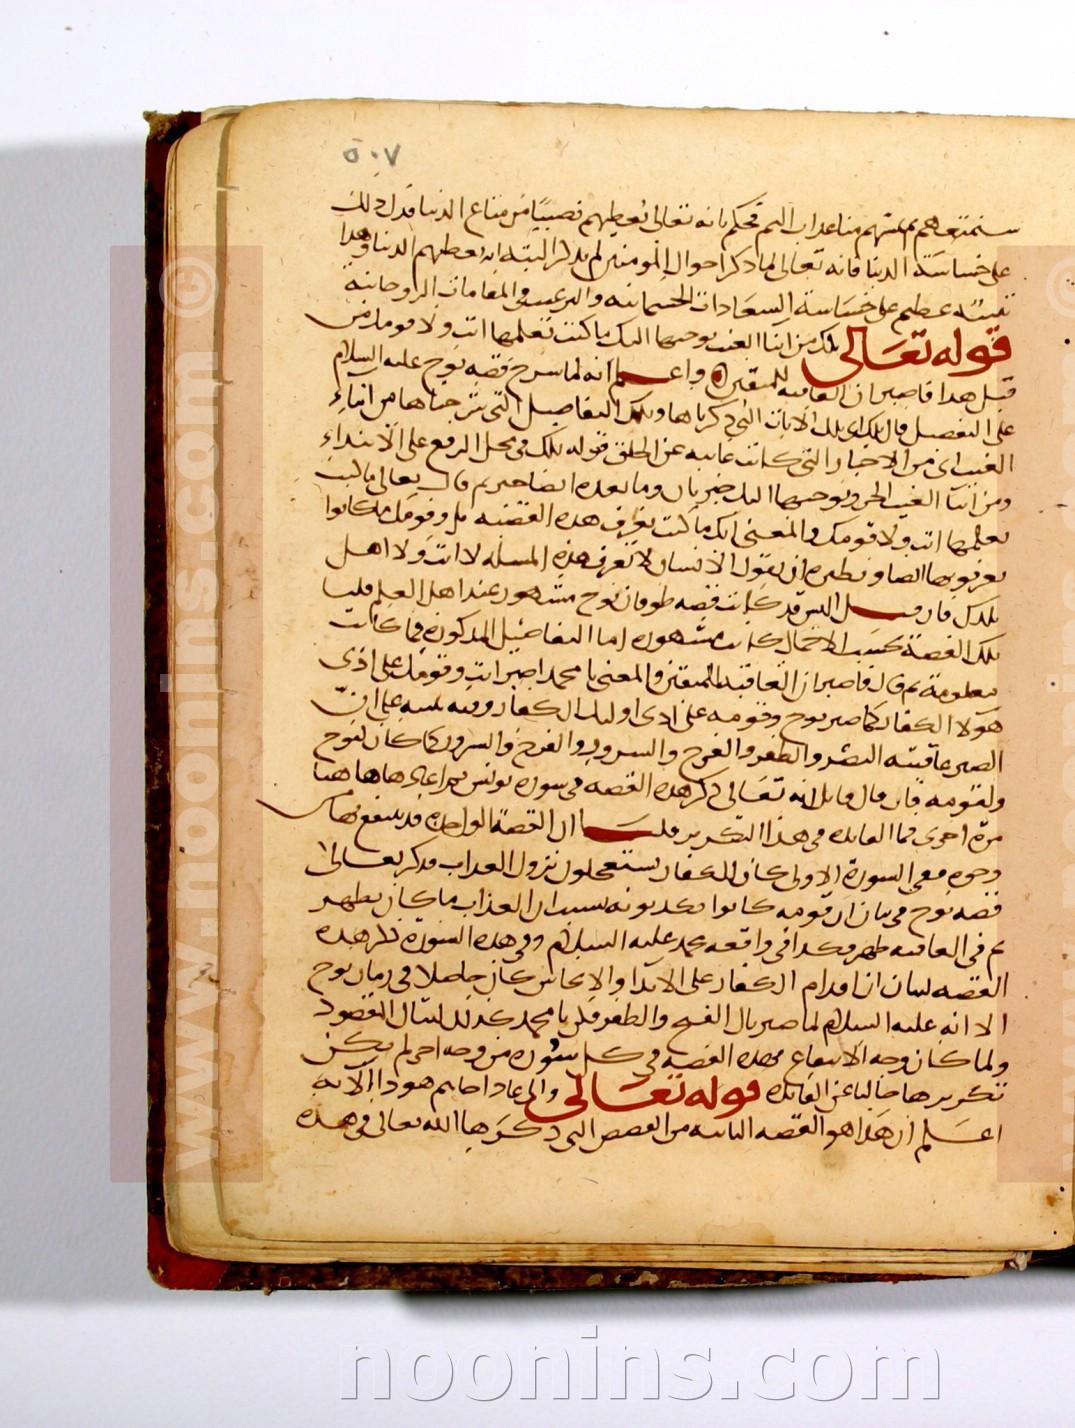 ٥٠٧
سنمتعهم ثم يمسهم منا عذاب اليم فحكم بانه تعالى يعطيهم نصيبا من متاع الدنيا فدل ذلك
على خساسة الدنيا فانه تعالى لما ذكر احوال المومنين لم يذكر البتة انه يعطيهم الدنيا وهذا
تنبيه عظيم على خساسة السعادات الجسمانية والترغيب في المقامات الروحانية
قوله تعالى تلك من انبا الغيب نوحيها اليك ما كنت تعلمها انت ولا قومك من
قبل هذا فاصبر ان العاقبة للمتقين واعلم انه لما شرح قصة نوح عليه السلام
على التفصيل قال تلك اى تلك الايات التي ذكرناها وتلك التفاصيل التي شرحناها من انباء
الغيب اى من الاخبار التي كانت غايبة عن الخلق فقوله تلك في محل الرفع على الابتداء
ومن انبا الغيب الخبر ونوحيها اليك خبر ثان وما بعده ايضا خبر ثم قال تعالى ما كنت
تعلمها انت ولا قومك والمعنى انك ما كنت تعرف هذه القصة بل وقومك ما كانوا
يعرفونها ايضا ونظيره ان يقول الانسان لا تعرف هذه المسلة لا انت ولا اهل
بلدك فان قيل اليس قد كانت قصة طوفان نوح مشهورة عند اهل العلم قلنا
تلك القصة بحسب الاجمال كانت مشهورة اما التفاصيل المذكورة فما كانت
معلومة ثم قال فاصبر ان العاقبة للمتقين والمعنى يا محمد اصبر انت وقومك على اذى
هولا الكفار كما صبر نوح وقومه على اذى اوليك الكفار وفيه تنبيه على ان
الصبر عاقبته النصر والظفر والفرح والسرور والفرح والسرور كما كان لنوح
ولقومه فان قال قايل انه تعالى ذكر هذه القصة في سورة يونس ثم اعادها هاهنا
مرة اخرى فما الفايدة في هذا التكرير قلنا ان القصة الواحدة قد ينتفع بها من
وجوه ففي السورة الاولى كان الكفار يستعجلون نزول العذاب فذكر تعالى
قصة نوح في بيان ان قومه كانوا يكذبونه بسبب ان العذاب ما كان يظهر
ثم في العاقبة ظهر فكذا في واقعة محمد عليه السلام وفي هذه السورة ذكر هذه
القصة لبيان ان اقدام الكفار على الايذا والايحاش كان حاصلا في زمان نوح
الا انه عليه السلام لما صبر نال الفتح والظفر فكن يا محمد كذلك لتنال المقصود
ولما كان وجه الانتفاع بهذه القصة في كل سورة من وجه اخر لم يكن
تكريرها خاليا عن الفايدة قوله تعالى والى عاد اخاهم هودا الاية
اعلم ان هذا هو القصة الثانية من القصص التي ذكرها الله تعالى في هذه
www.noonins.com ©
noonins.com